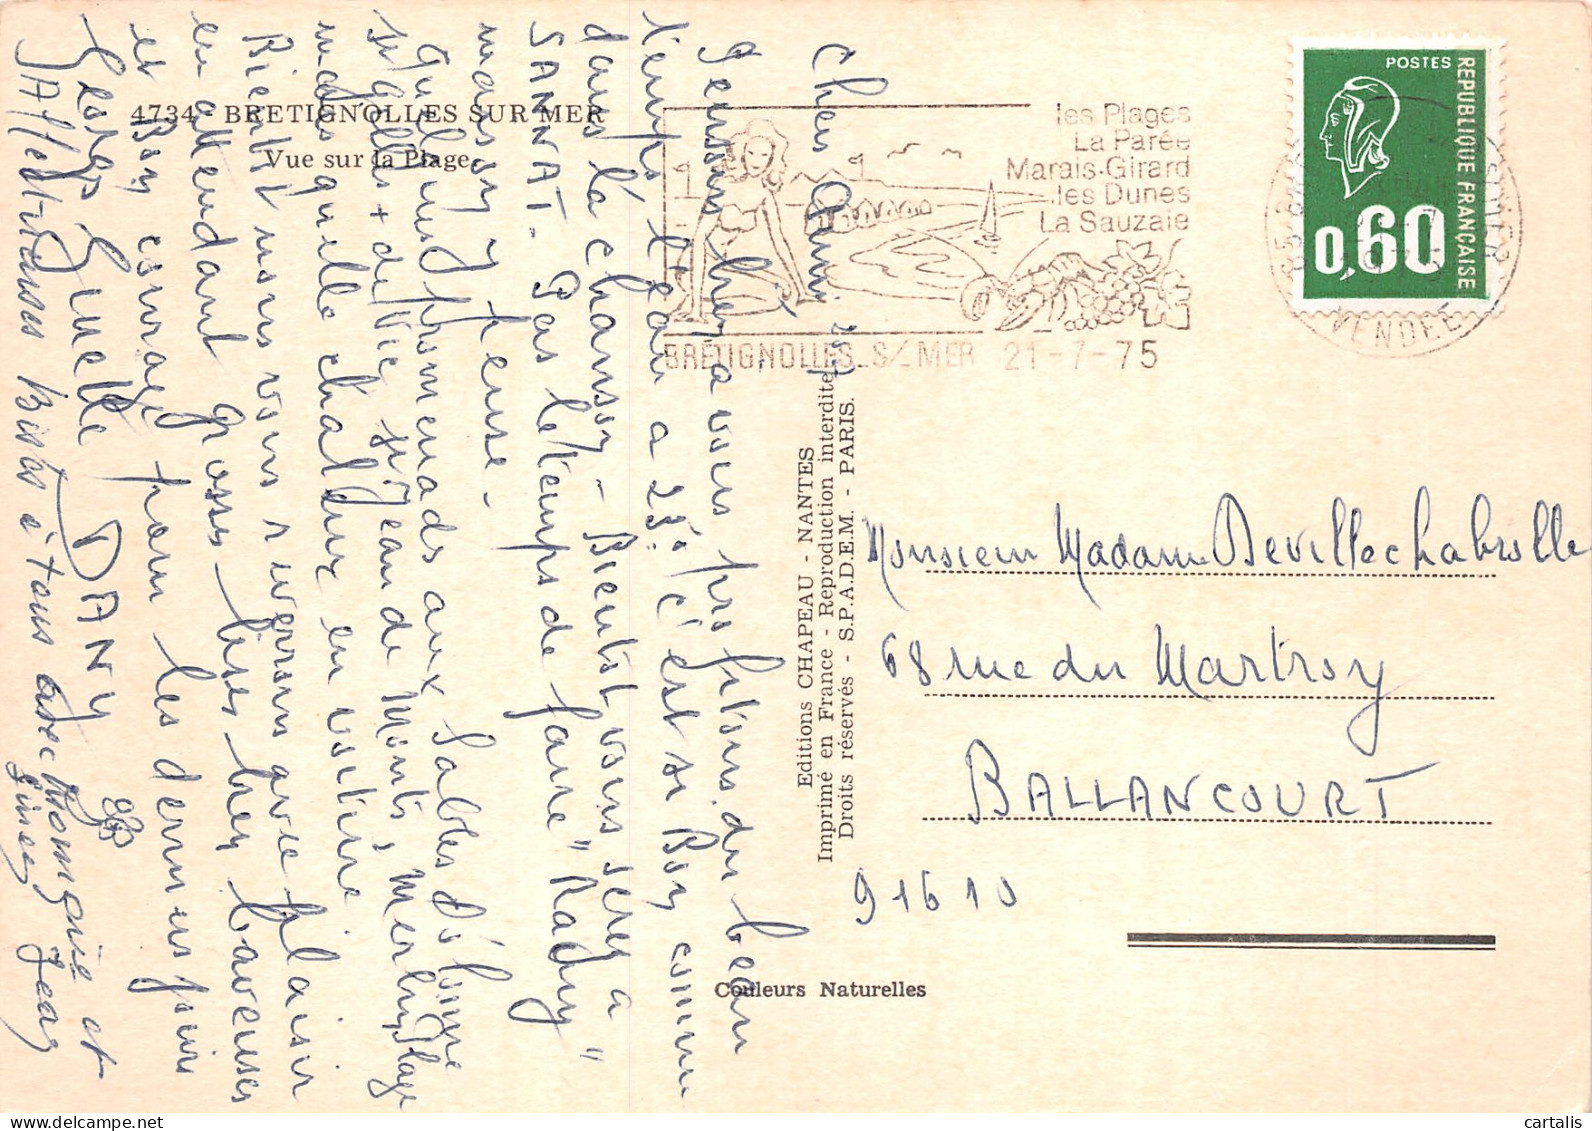 4734 - BRETIGNOLLES SUR MER
Vue sur la Plage.
les Plages
La Parée
Marais-Girard
les Dunes
La Sauzaie
BRETIGNOLLES S/ MER 21-7-75
POSTES
REPUBLIQUE FRANÇAISE
0,60
VENDEE
Editions CHAPEAU - NANTES
Imprimé en France - Reproduction interdite
Droits réservés - S.P.A.D.E.M. - PARIS.
Couleurs Naturelles
Monsieur Madame Devillechabrolle
68 rue du Martroy
BALLANCOURT
91610
Chers Amis
Pensons bien à vous, profitons du beau
temps l'eau à 23° c'est si Bon comme
dans la chanson - Bientôt vous serez à
SANNAT - Pas le temps de faire "Radin"
maison
quelques promenades aux Sables d'Olonne
St Gilles + de Vie St Jean de Monts, Merlin Plage
mais quelle chaleur en voiture
Bientôt nous vous reverrons avec plaisir
en attendant grosses bises bien baveuses
et Bon courage pour les derniers jours
Ginette DANY
Affectueuses bises à tous avec et
Jean